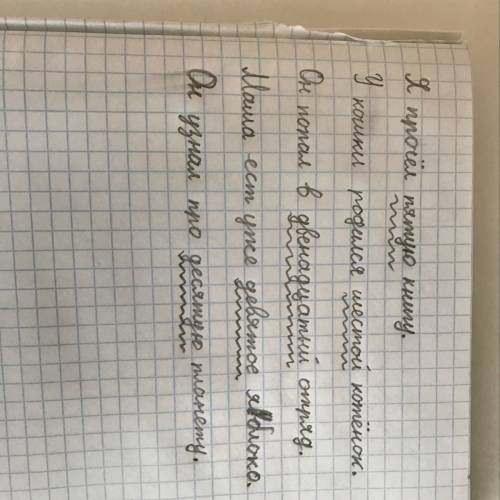 Я прочёл пятую книгу.
У кошки родился шестой котёнок.
Он попал в двенадцатый отряд.
Мама ест уже девятое яблоко.
Он узнал про десятую планету.